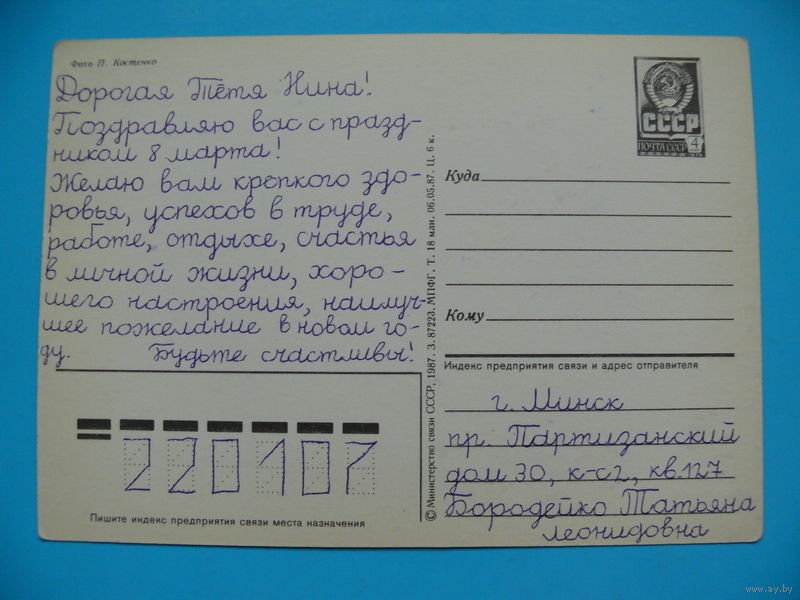 Фото П. Костенко
Дорогая Тётя Нина!
Поздравляю вас с празд-
ником 8 марта!
Желаю вам крепкого здо-
ровья, успехов в труде,
работе, отдыхе, счастья
в личной жизни, хоро-
шего настроения, наилуч-
шее пожелание в новом го-
ду. Будьте счастливы!
220107
Пишите индекс предприятия связи места назначения
© Министерство связи СССР, 1987. З. 87223. МПФГ. Т. 18 млн. 06.05.87. Ц. 6 к.
СССР
ПОЧТА СССР 4
Куда
Кому
Индекс предприятия связи и адрес отправителя
г. Минск
пр. Партизанский
дом 30, к-с2, кв. 127
Бородейко Татьяна
Леонидовна
www.ay.by